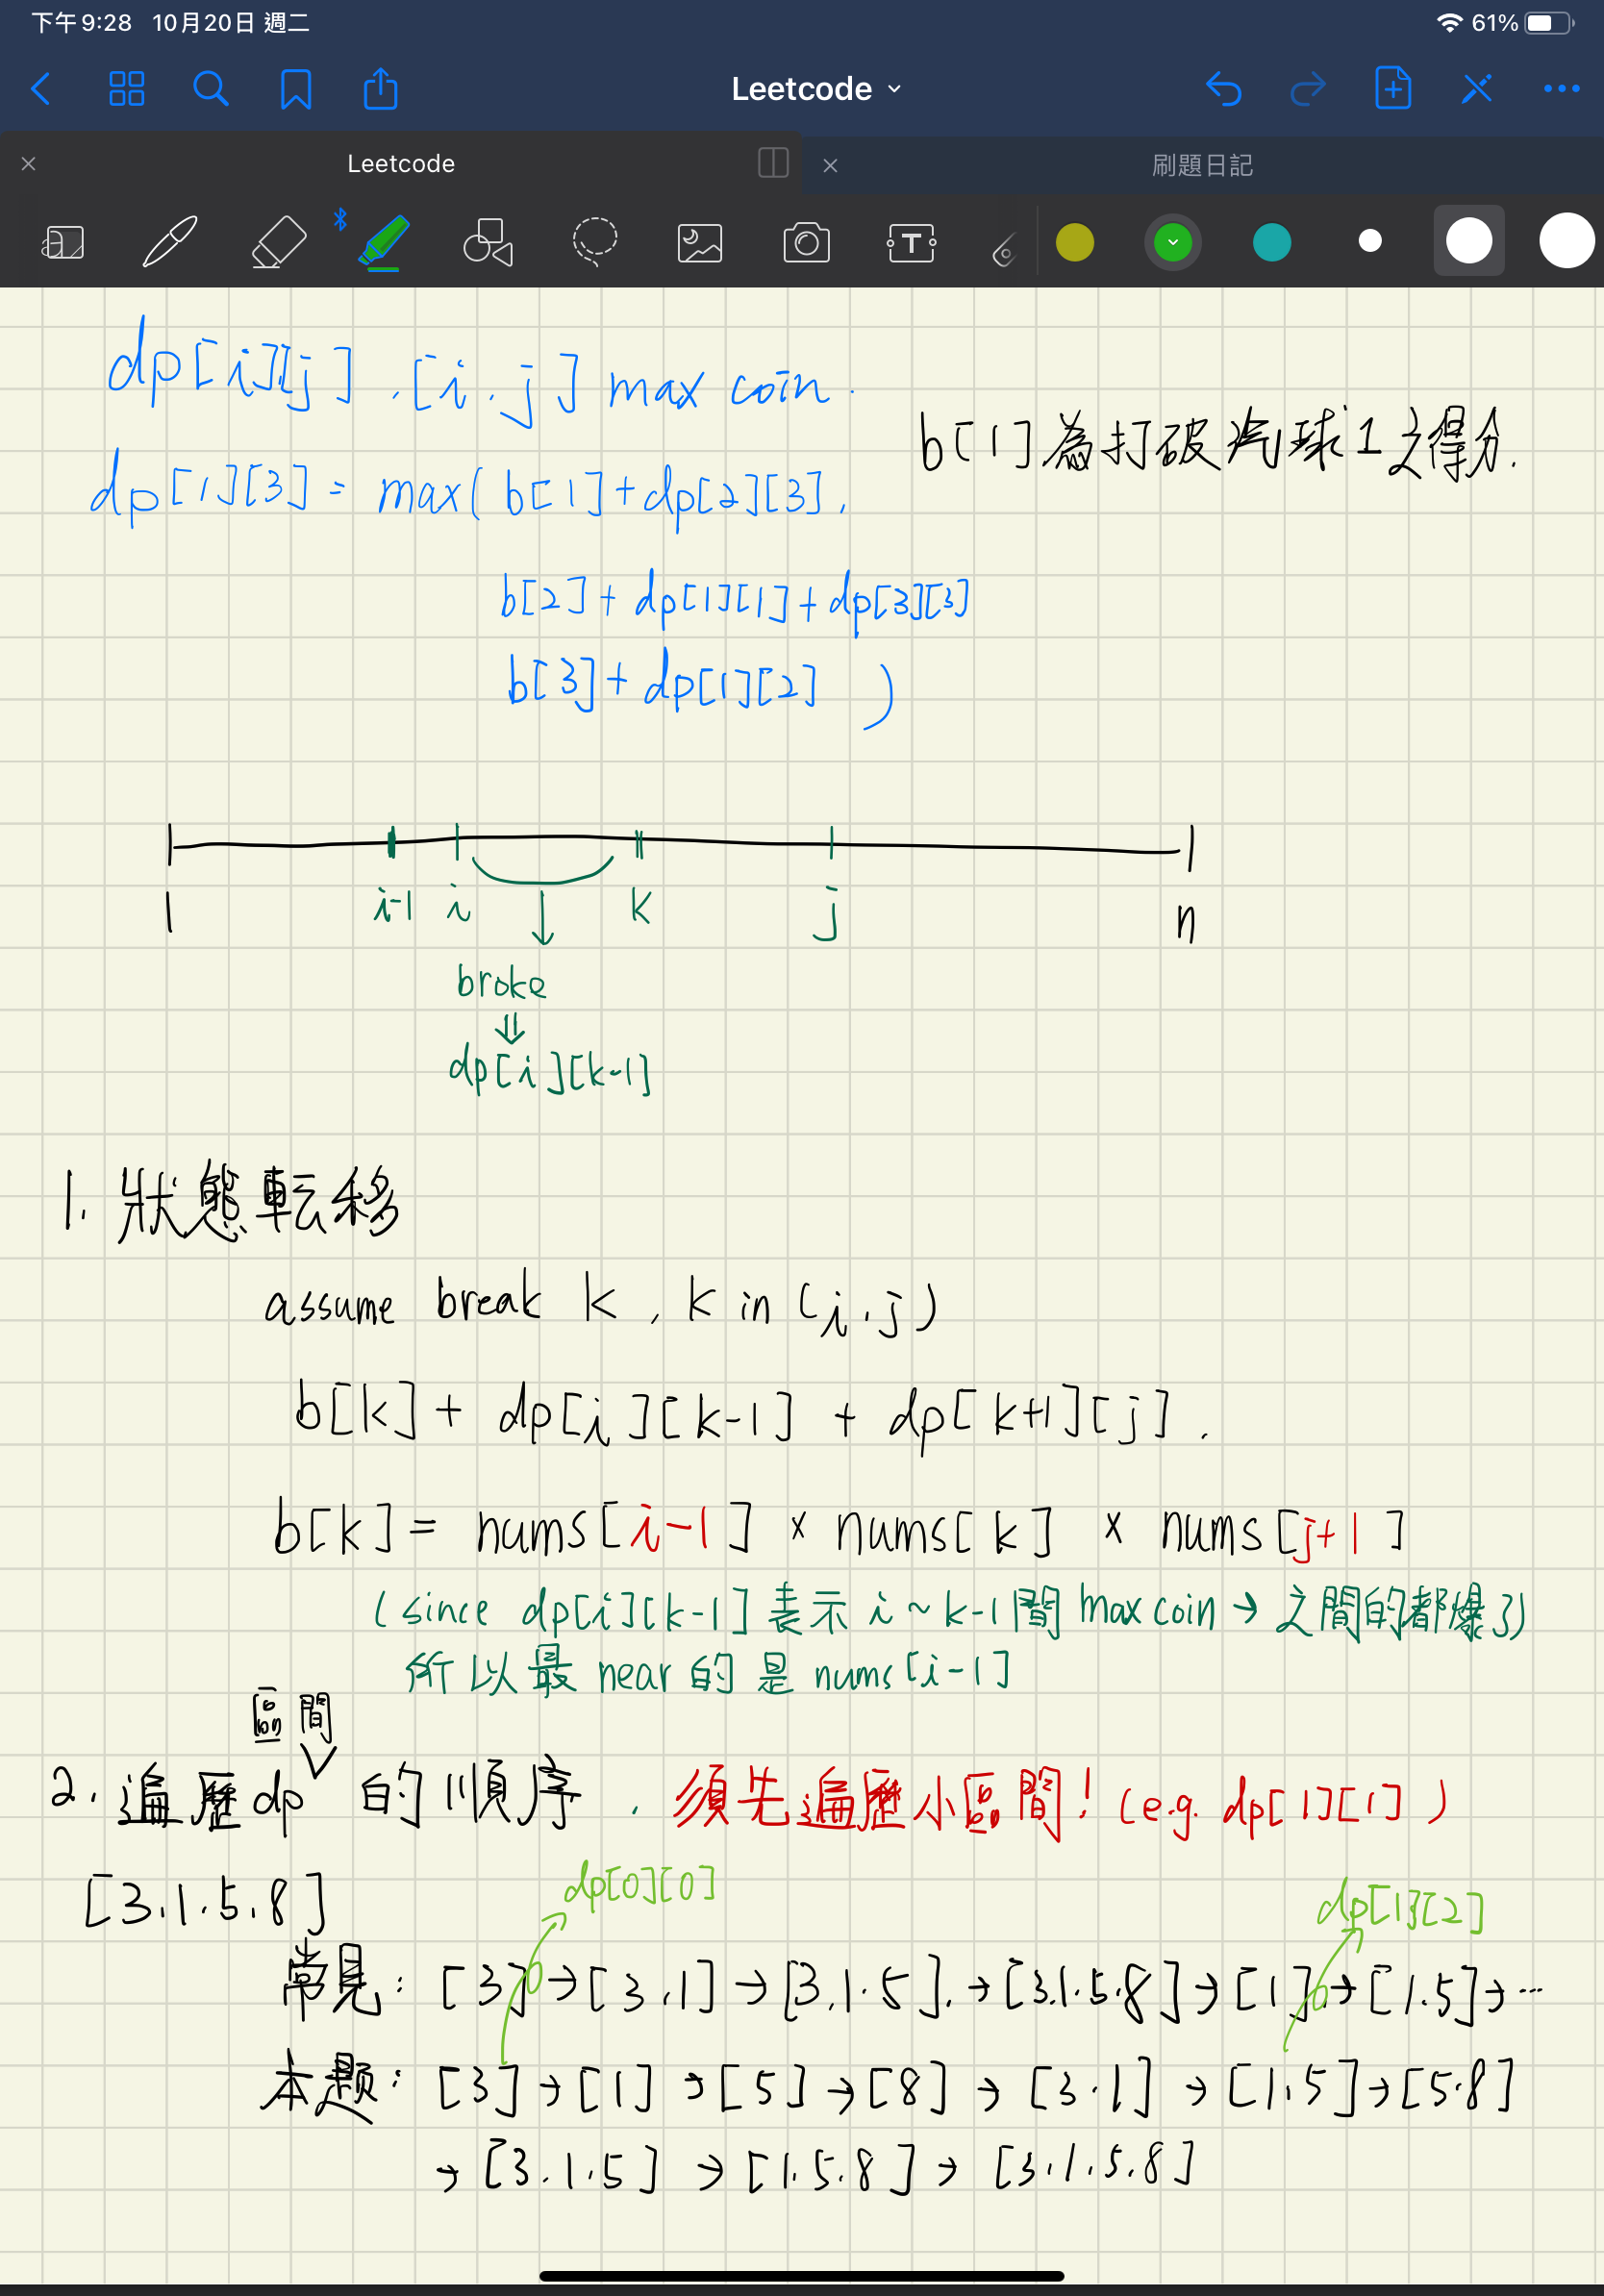 下午9:28 10月20日 週二 61%
Leetcode
Leetcode 刷題日記
T
dp[i][j] , [i,j] max coin.
b[1]為打破汽球1之得分.
dp[1][3] = max( b[1]+dp[2][3],
b[2]+ dp[1][1]+dp[3][3]
b[3]+ dp[1][2] )
1 i-1 i k j n
broke
dp[i][k-1]
1. 狀態転移
assume break k , k in (i,j)
b[k] + dp[i][k-1] + dp[k+1][j].
b[k] = nums[i-1] × nums[k] × nums[j+1]
(since dp[i][k-1]表示i~k-1間max coin→之間的都爆了)
所以最near的是nums[i-1]
區間
2. 遍歷dp的順序. 須先遍歷小區間! (e.g. dp[1][1])
[3.1.5.8]
dp[0][0] dp[1][2]
常見: [3]→[3.1]→[3.1.5].→[3.1.5.8]→[1]→[1.5]→...
本题: [3]→[1]→[5]→[8]→[3.1]→[1.5]→[5.8]
→[3.1.5]→[1.5.8]→[3.1.5.8]